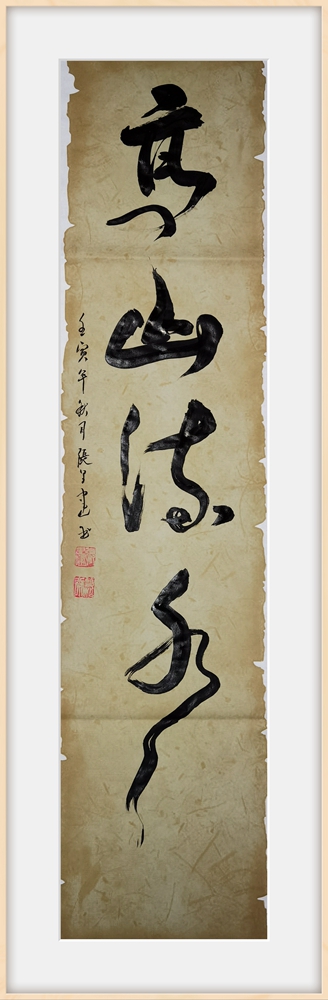 高山流水
壬寅年秋月